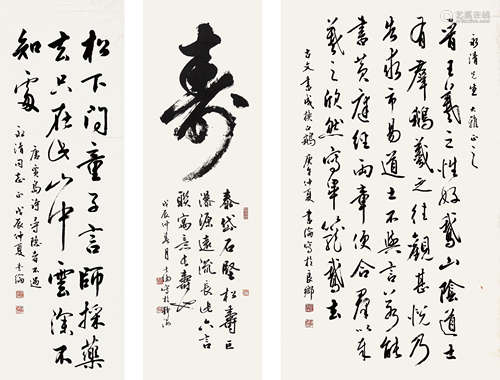 永清先生大雅正之
昔王羲之性好鵞山陰道士
有群鵝羲之往觀甚悅乃
告求市易道士不與言若能
書黃庭經两章便合群以奉
羲之欣然寫畢籠鵞去
古文書成換白鵝 庚午仲夏 寫於良鄉
壽
泰岱石堅松壽巨
瀑源遠流長此六言
聯寓意
戊辰仲夏月
松下問童子言師採藥
去只在此山中雲深不
知處
唐賈島詩尋隱者不遇
永清同志正 戊辰仲夏